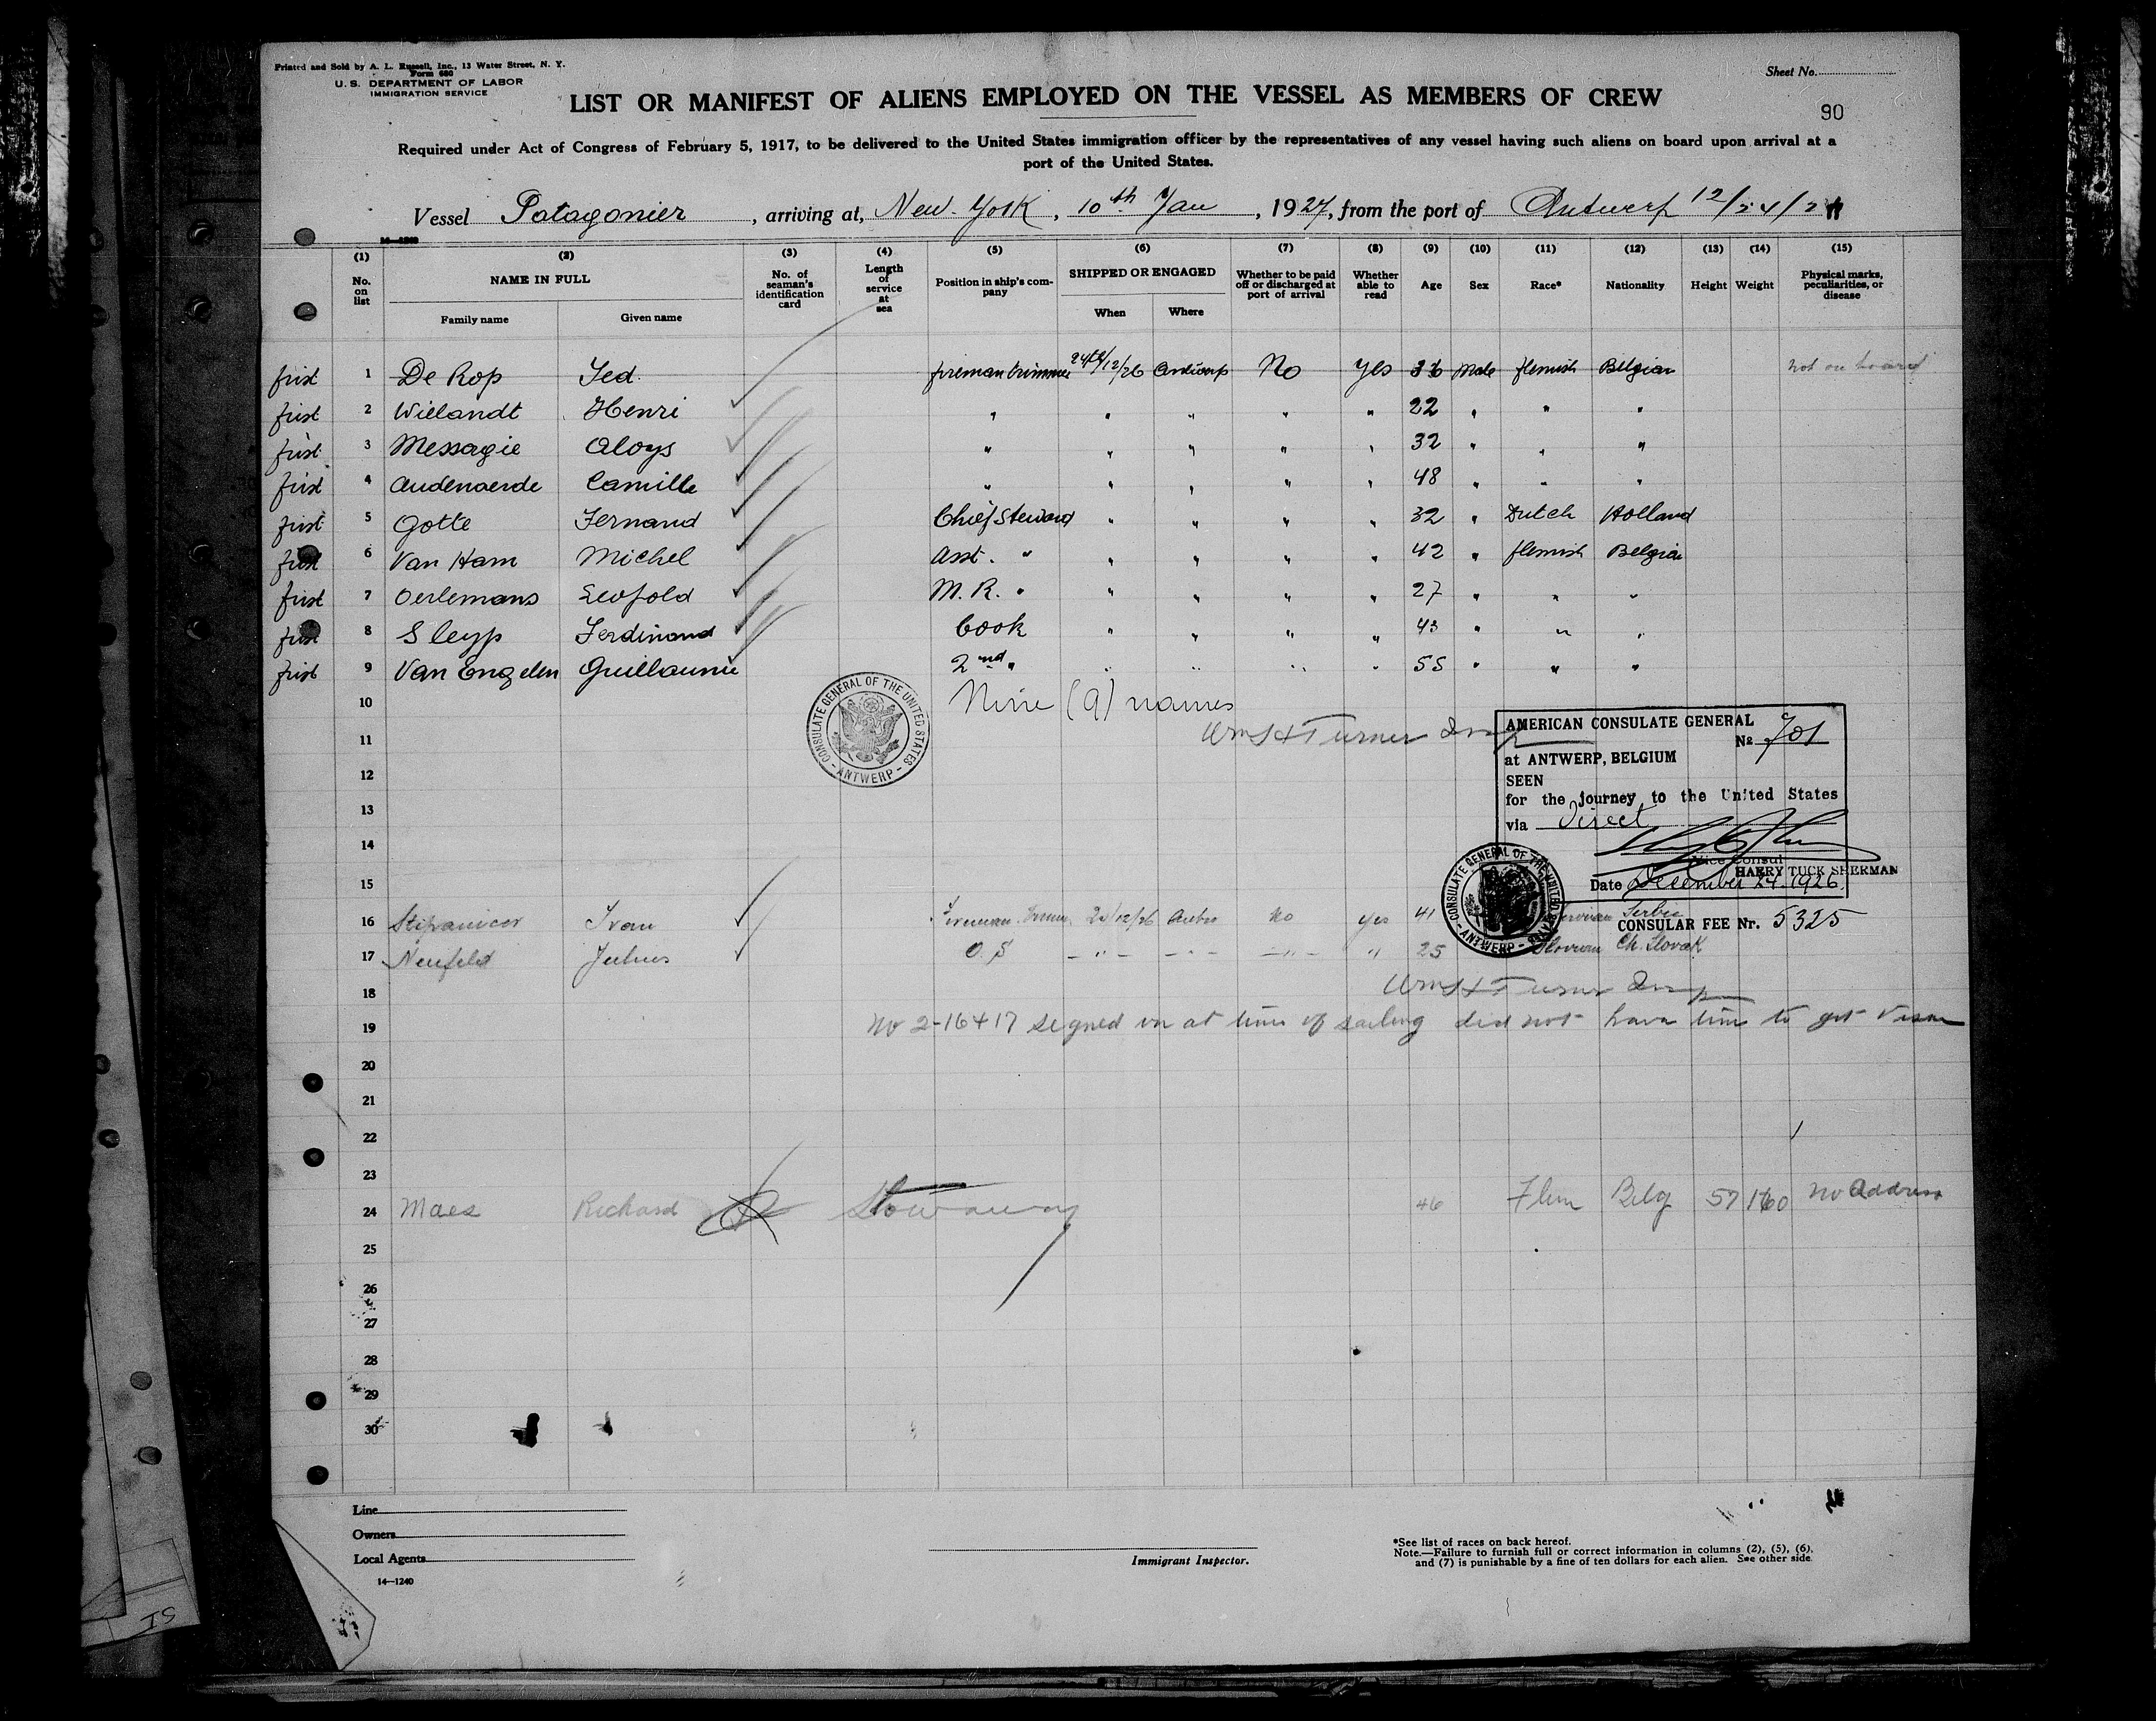 Printed and Sold by A. L. Russell, Inc., 13 Water Street, N. Y.
Form 680
U. S. DEPARTMENT OF LABOR
IMMIGRATION SERVICE
Sheet No.
LIST OR MANIFEST OF ALIENS EMPLOYED ON THE VESSEL AS MEMBERS OF CREW
90
Required under Act of Congress of February 5, 1917, to be delivered to the United States immigration officer by the representatives of any vessel having such aliens on board upon arrival at a
port of the United States.
Vessel Patagonier, arriving at, New-York, 10th Jan, 1927, from the port of Antwerp 12/24/2
14-1240
(1) (2) (3) (4) (5) (6) (7) (8) (9) (10) (11) (12) (13) (14) (15)
No. on list
NAME IN FULL
Family name
Given name
No. of seaman's identification card
Length of service at sea
Position in ship's company
SHIPPED OR ENGAGED
When
Where
Whether to be paid off or discharged at port of arrival
Whether able to read
Age
Sex
Race*
Nationality
Height
Weight
Physical marks, peculiarities, or disease
first 1 De Rop Jed. fireman trimmer 24th/12/26 Antwerp No Yes 36 Male flemish Belgian not on board
first 2 Wielandt Henri " " " " " 22 " " "
first 3 Messagie Aloys " " " " " 32 " " "
first 4 Audenaerde Camille " " " " " 48 " " "
first 5 Gotte Fernand Chief Steward " " " " 32 " Dutch Holland
first 6 Van Ham Michel Asst. " " " " " 42 " flemish Belgian
first 7 Oerlemans Leopold M. R. " " " " " 27 " " "
first 8 Sleyp Ferdinand Cook " " " " 43 " " "
first 9 Van Engelen Guillaume 2nd " " " " " 55 " " "
10 Nine (9) names
11 Wm H Turner Insp
12
13
14
15
CONSULATE GENERAL OF THE UNITED STATES - ANTWERP -
AMERICAN CONSULATE GENERAL
No 701
at ANTWERP, BELGIUM
SEEN
for the journey to the United States
via Direct
Vice Consul
HARRY TUCK SHERMAN
Date December 24. 1926.
CONSULATE GENERAL OF THE UNITED STATES - ANTWERP -
CONSULAR FEE Nr. 5325
16 Stipanicev Ivan Fireman Trimmer 24/12/26 Antw No Yes 41 Serbia
17 Neufeld Julius O. S -"- -"- -"- " 25 Ch. Slovak
18 Wm H Turner Insp
19 No 2-16+17 signed on at time of sailing did not have time to get Visae
20
21
22
23
24 Maes Richard Stowaway 46 Flem Belg 57 160 no address
25
26
27
28
29
30
Line
Owners
Local Agents
14—1240
Immigrant Inspector.
*See list of races on back hereof.
Note.—Failure to furnish full or correct information in columns (2), (5), (6),
and (7) is punishable by a fine of ten dollars for each alien. See other side.